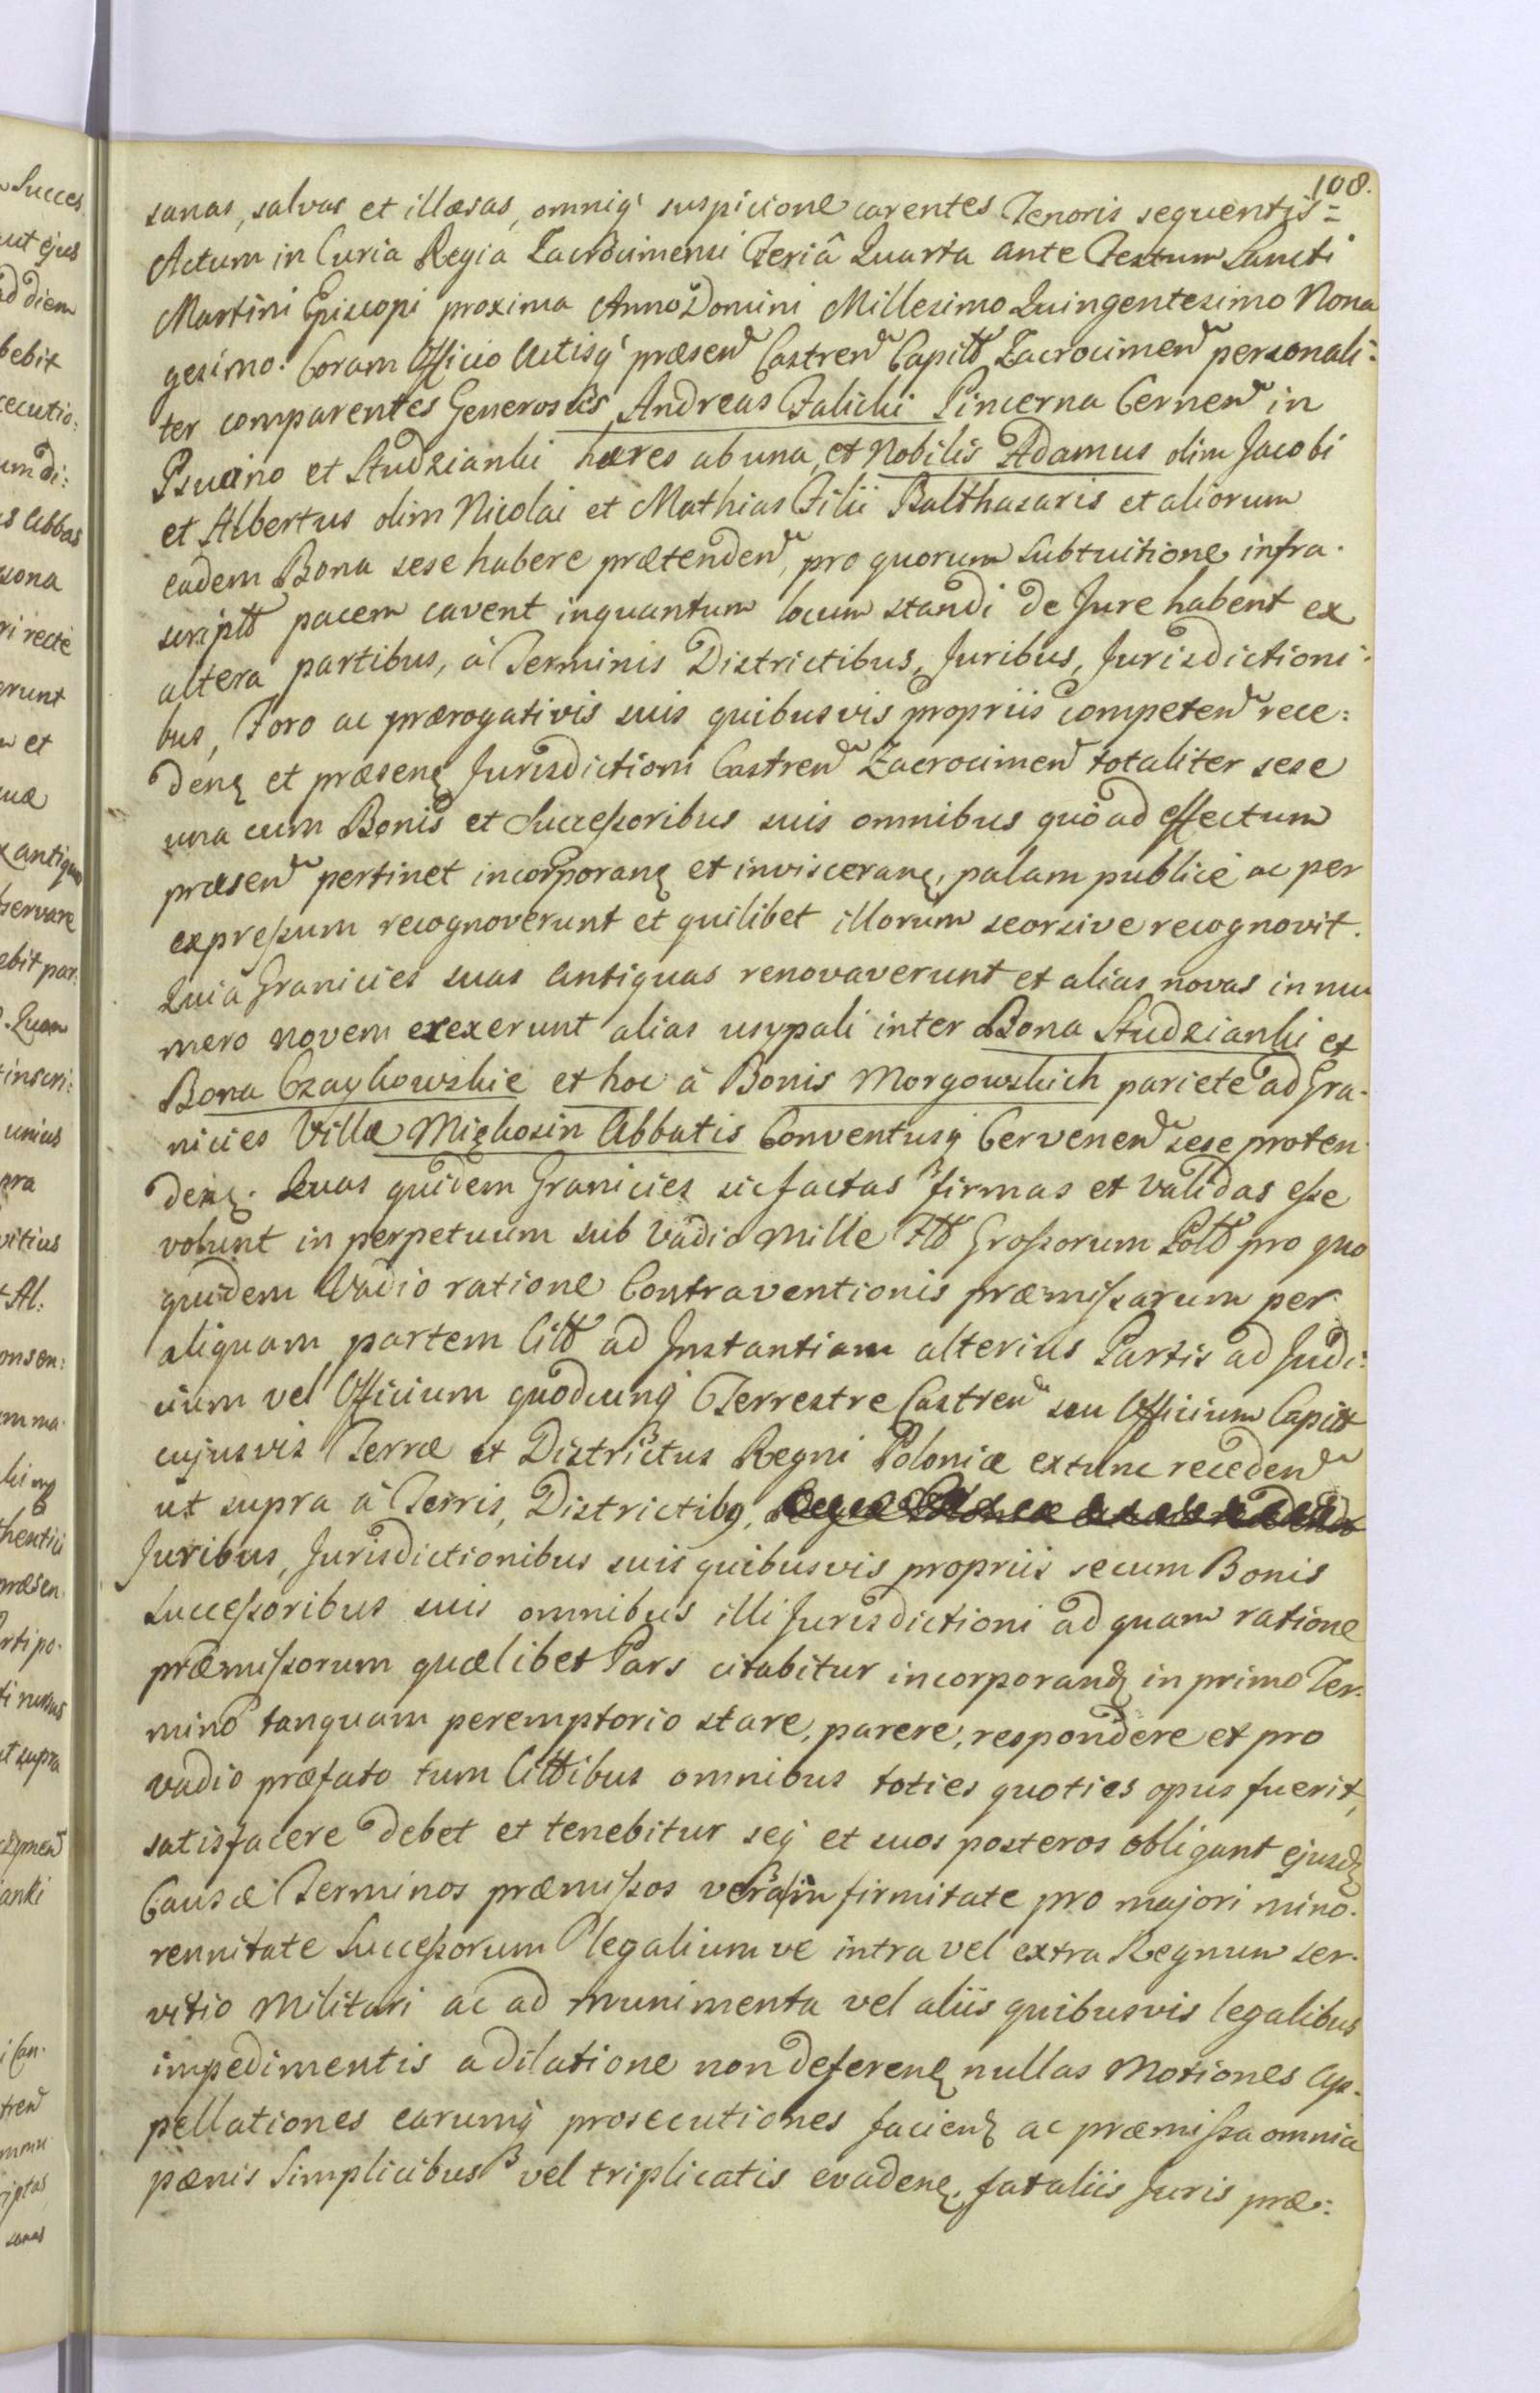 108.
sanas, salvas et illæsas, omniq́ suspicione carentes Tenoris sequentis=
Actum in Curia Regia Zacrocimensi Feriâ Quarta ante Festum Sancti
Martini Episcopi proxima Anno Domini Millesimo Quingentesimo Nona
gesimo. Coram Officio Actisq́ præsen̄ Castren̄ Capitt Zacrocimen̄ personali:
ter comparentes Generosus Andreas Falicki Pincerna Cernen̄ in
et Studzianki hæres ab una, et Nobilis Adamus olim Jacobi
et Albertus olim Nicolai et Mathias Filii Balthasaris et aliorum
eadem Bona sese habere prætenden̄, pro quorum subtuitione infra.
scriptt pacem cavent inquantum locum standi de Jure habent ex
altera partibus, à Terminis Districtibus, Juribus, Jurisdictioni:
bus, Foro ac prærogativis suis quibusvis propriis competen̄ rece:
denꝫ et præsenꝫ Jurisdictioni Castren̄ Zacrocimen̄ totaliter sese
una cum Bonis et Succeßoribus suis omnibus quo ad effectum
præsen̄ pertinet incorporanꝫ et invisceranꝫ, palam publicè ac per
expreßum recognoverunt et quilibet illorum seorsive recognovit.
Quia Granicies suas antiquas renovaverunt et alias novas in nu
mero novem erexerunt alias usypali inter Bona Studzianki et
Bona Czaykowskie et hoc à Bonis Morgowskich pariete ad Gra.
nicies Villæ Miękosin Abbatis Conventusq́ Cervenen̄ sese proten
denꝫ. Quas quidem Granicies sic factas firmas et validas eße
volunt in perpetuum sub Vadio Mille Fltt Großorum Poltt pro quo
quidem Vadio ratione Contraventionis præmißarum per
aliquam partem Citt ad Instantiam alterius Partis ad Judi:
cium vel Officium quodcunq́ Terrestre Castren̄ seu Officium Capitt
cujusvis Terræ et Districtus Regni Poloniæ extunc receden̄
ut supra à Terris, Districtibꝯ,
Juribus, Jurisdictionibus suis quibusvis propriis secum Bonis
Succeßoribus suis omnibus illi Jurisdictioni ad quam ratione
præmißorum quælibet Pars citabitur incorporanꝫ in primo Ter:
mino tanquam peremptorio stare, parere, respondere et pro
vadio præfato tum Cittibus omnibus toties quoties opus fuerit,
satisfacere debet et tenebitur seq́ et suos posteros obligant ejusdꝫ
Causæ Terminos præmißos vera in firmitate pro majori mino.
rennitate Succeßorum legaliumve intra vel extra Regnum ser.
vitio Militari ac ad munimenta vel aliis quibusvis legalibus
impedimentis a dilatione non deferenꝫ nullas Motiones Ap.
pellationes earumq́ prosecutiones facienꝫ ac præmißa omnia
pænis Simplicibus vel triplicatis evadenꝫ, fataliis Juris præ: